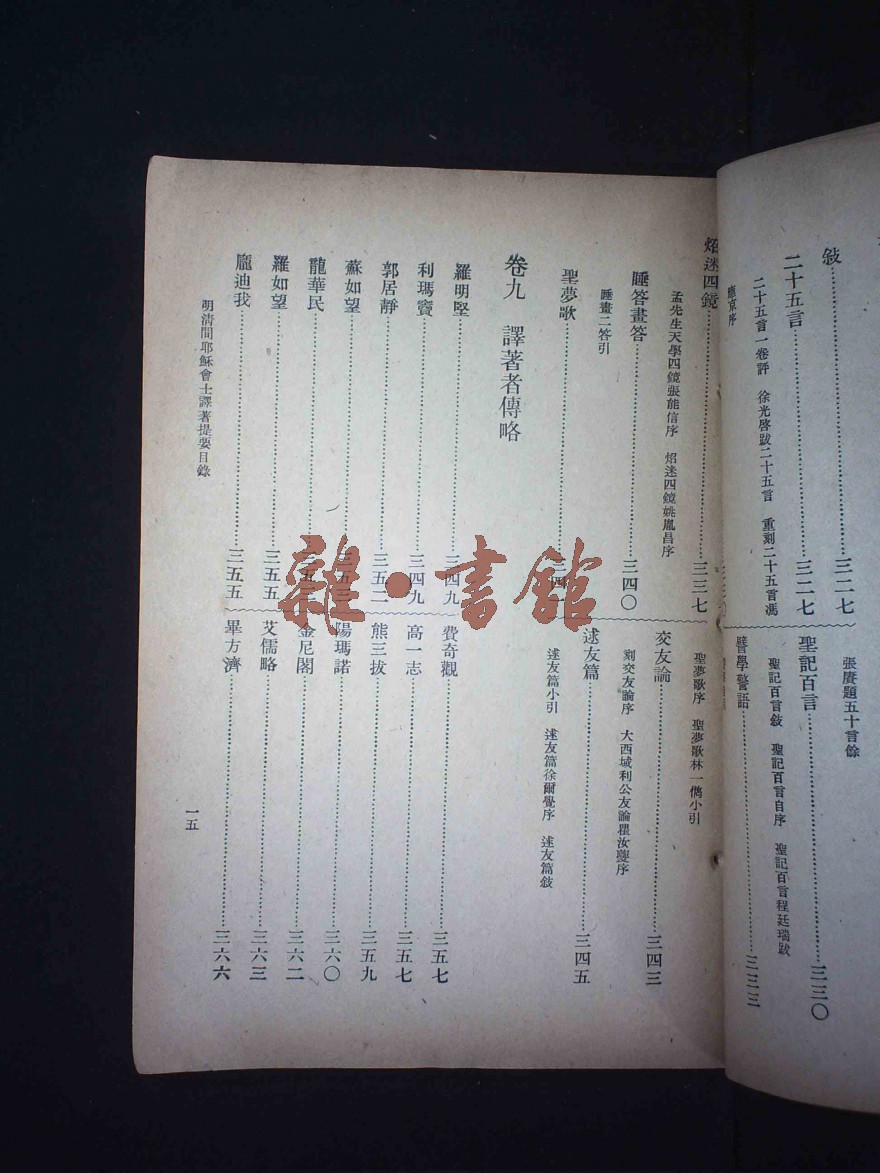 敍……三二七
二十五言……三二七
二十五言一卷評　徐光啓跋二十五言　重刻二十五言馮
應京序
炤迷四鏡……三三七
孟先生天學四鏡張能信序　炤迷四鏡姚胤昌序
睡答畫答……三四〇
睡畫二答引
聖夢歌
張賡題五十言餘
聖記百言……三三〇
聖記百言敍　聖記百言自序　聖記百言程廷瑞跋
譬學警語……三三三
聖夢歌序　聖夢歌林一儁小引
交友論……三四三
刻交友論序　大西域利公友論瞿汝夔序
逑友篇……三四五
逑友篇小引　逑友篇徐爾覺序　逑友篇敍
卷九　譯著者傳略
羅明堅……三四九
利瑪竇……三四九
郭居靜……三五二
蘇如望
龍華民
羅如望……三五五
龐迪我……三五五
費奇觀……三五七
高一志……三五七
熊三拔……三五九
陽瑪諾……三六〇
金尼閣……三六二
艾儒略……三六三
畢方濟……三六六
明清間耶穌會士譯著提要目錄
一五
雜·書館